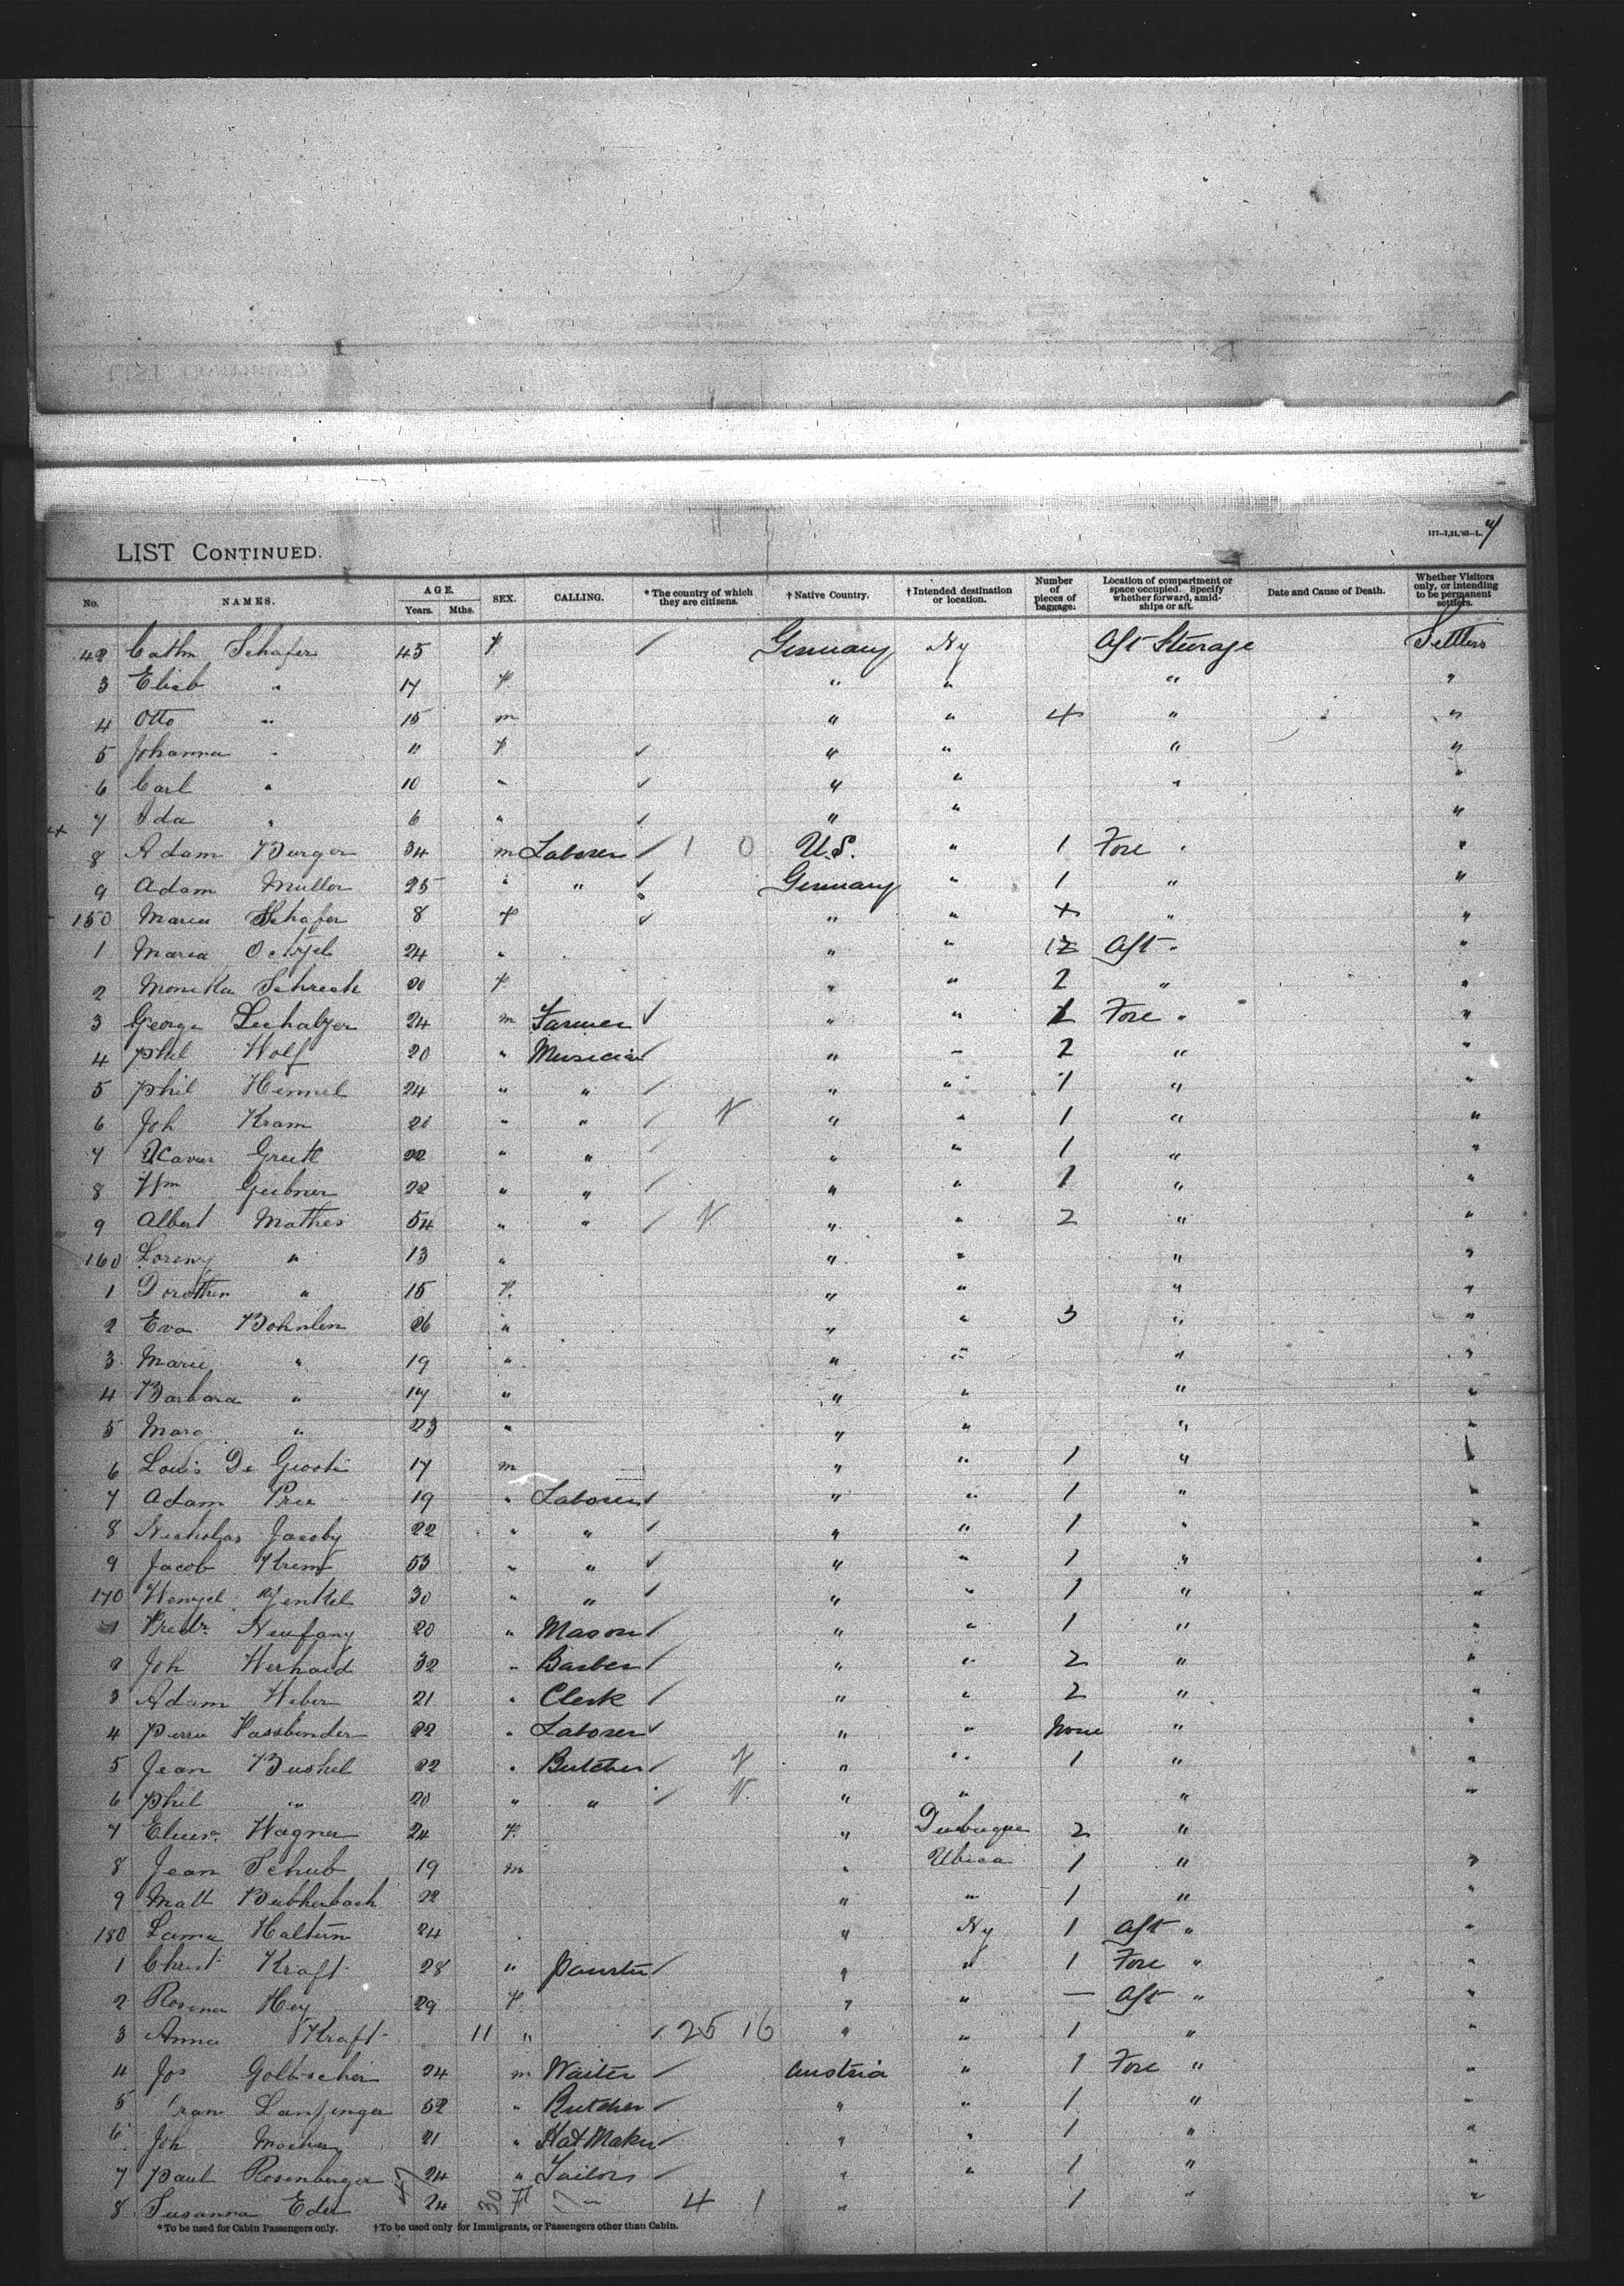 117-7,21,'93-L. 4
LIST CONTINUED.
No. NAMES. AGE. Years. Mths. SEX. CALLING. *The country of which they are citizens. †Native Country. †Intended destination or location. Number of pieces of baggage. Location of compartment or space occupied. Specify whether forward, amidships or aft. Date and Cause of Death. Whether Visitors only, or intending to be permanent settlers.
42 Cathn Schafer 45 f ✓ Germany Ny Aft Sturage Settlers
3 Elisb " 17 f " " " "
4 Otto " 15 m " " 4 " "
5 Johanna " 11 f ✓ " " " "
6 Carl " 10 " ✓ " " " "
7 Ida " 6 " ✓ " " "
8 Adam Burger 34 m Laborer ✓ 1 0 U.S. " 1 Fore " "
9 Adam Muller 25 " " ✓ Germany " 1 " "
150 Maria Schafer 8 f ✓ " " " "
1 Maria 24 " " " Aft " "
2 Monika Schreck 20 f " " 2 " "
3 George 24 m Farmer ✓ " " Fore " "
4 Phil Wolf 20 " Musician ✓ " " 2 " "
5 Phil Hemmel 24 " " ✓ " " 1 " "
6 Joh Kram 20 " " ✓ N " " 1 " "
7 22 " " ✓ " " 1 " "
8 Wm Geibner 22 " " ✓ " " 1 " "
9 Albert Mathes 54 " " ✓ N " " 2 " "
160 Lorenz " 13 " " " " "
1 Dorothea " 15 f " " " "
2 Eva Bohnlein 26 " " " 3 " "
3 Marie " 19 " " " " "
4 Barbara " 17 " " " " "
5 Marg " 23 " " " " "
6 Louis De Giosti 17 m " " 1 "
7 Adam 19 " Laborer ✓ " " 1 " "
8 Nicholas Jacoby 22 " " ✓ " " 1 " "
9 Jacob 53 " " ✓ " " 1 " "
170 Wenzel 30 " " ✓ " " 1 " "
1 Fredr Neufang 20 " Mason ✓ " " 1 " "
2 Joh 32 " Barber ✓ " " 2 " "
3 Adam Weber 21 " Clerk ✓ " " 2 " "
4 Pierre Fassbender 22 " Laborer ✓ " " None " "
5 Jean Bushel 22 " Butcher ✓ N " " 1 " "
6 Phil " 20 " " ✓ N " " " "
7 Wagner 24 f " Dubuque 2 " "
8 Jean Schub 19 m " Utica 1 " "
9 Matt 22 " " 1 " "
180 24 " Ny 1 Aft " "
1 Christ Kraft 28 " ✓ " " 1 Fore " "
2 Rosina Hey 29 f " " — Aft " "
3 Anna Kraft 11 " ✓ 25 16 " " 1 " "
4 Jos 24 m Waiter ✓ Austria " 1 Fore " "
5 52 " Butcher ✓ " " 1 " "
6 Joh 21 " Hat Maker ✓ " " 1 " "
7 Paul Rosenberger 24 " Tailor ✓ " " 1 " "
8 Susanna Eder 24 30 17 4 1 " 1 " "
*To be used for Cabin Passengers only. †To be used only for Immigrants, or Passengers other than Cabin.